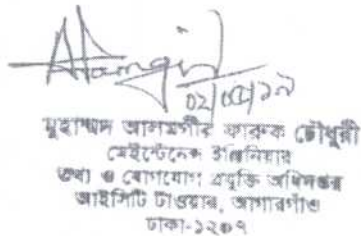 Alamgir
০২/০৫/১৯
মুহাম্মদ আলমগীর ফারুক চৌধুরী
মেইন্টেনেন্স ইঞ্জিনিয়ার
তথ্য ও যোগাযোগ প্রযুক্তি অধিদপ্তর
আইসিটি টাওয়ার, আগারগাঁও
ঢাকা-১২০৭